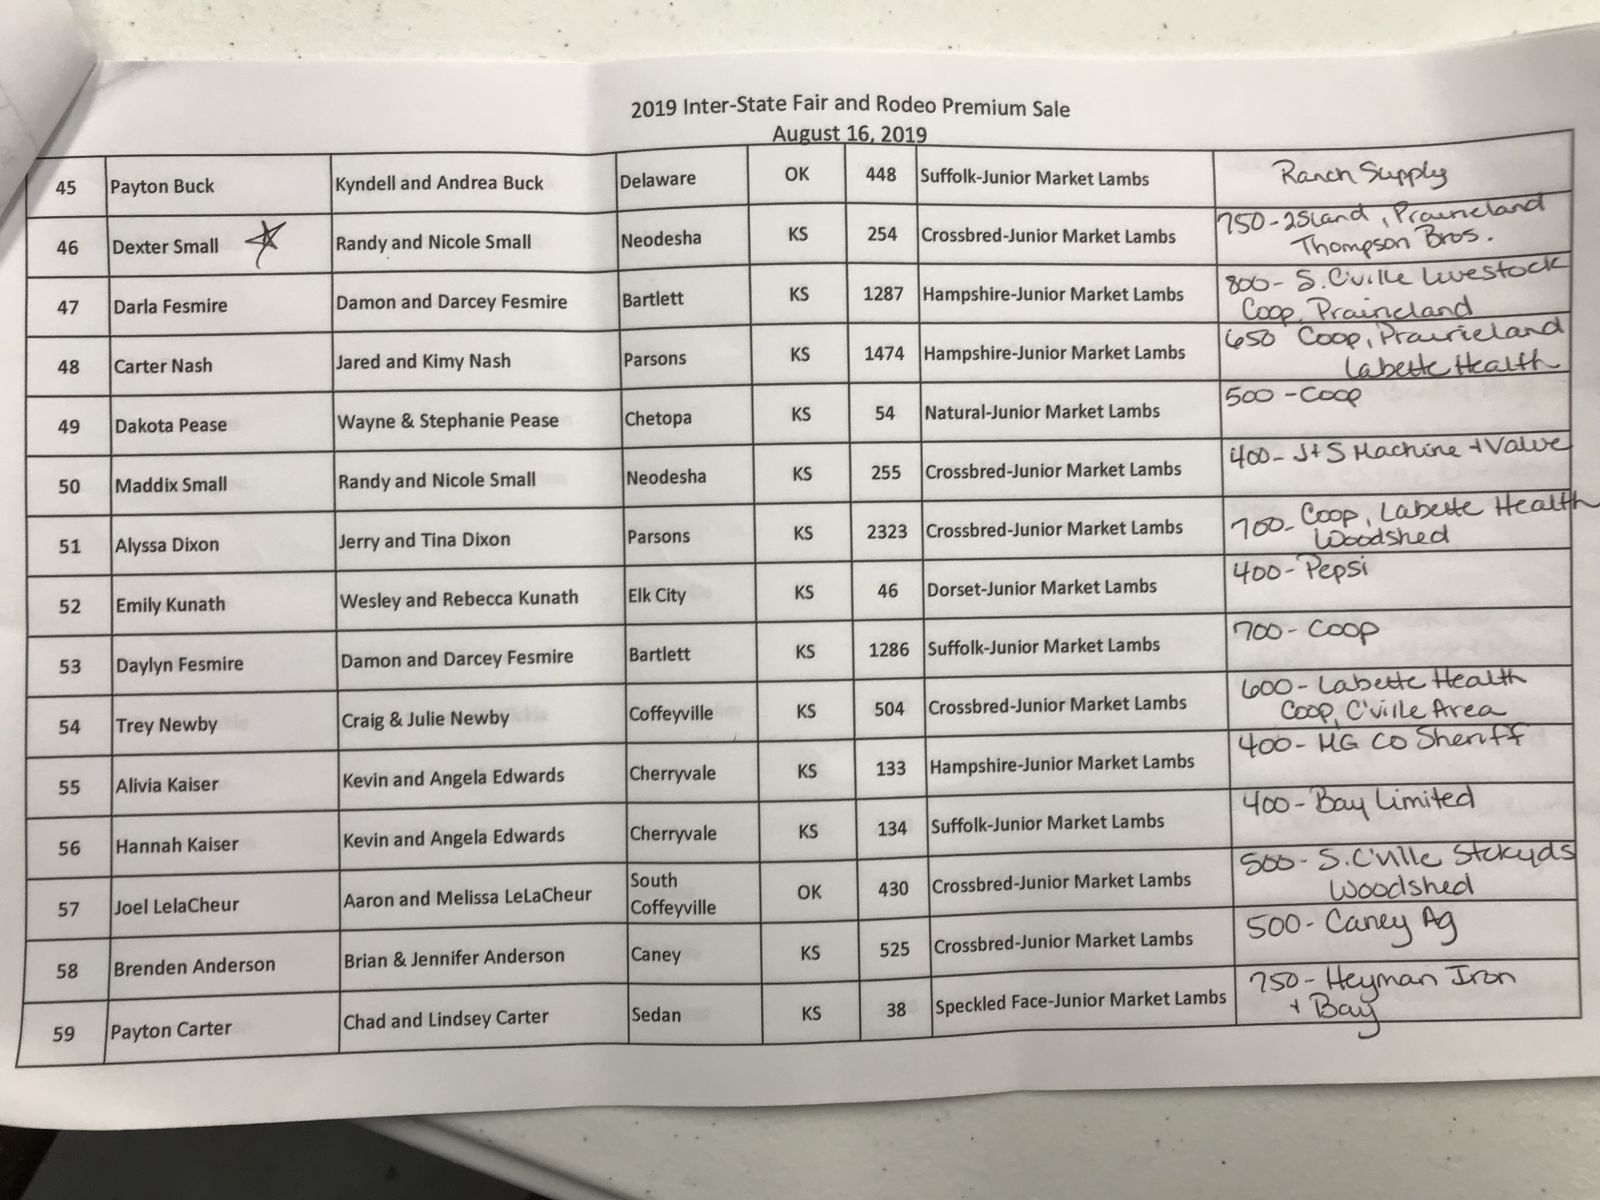 2019 Inter-State Fair and Rodeo Premium Sale
August 16, 2019
45 Payton Buck Kyndell and Andrea Buck Delaware OK 448 Suffolk-Junior Market Lambs Ranch Supply
46 Dexter Small Randy and Nicole Small Neodesha KS 254 Crossbred-Junior Market Lambs 750-2SLand, Prairieland
Thompson Bros.
47 Darla Fesmire Damon and Darcey Fesmire Bartlett KS 1287 Hampshire-Junior Market Lambs 800- S. C'ville Livestock
Coop, Prairieland
48 Carter Nash Jared and Kimy Nash Parsons KS 1474 Hampshire-Junior Market Lambs 650 Coop, Prairieland
Labette Health
49 Dakota Pease Wayne & Stephanie Pease Chetopa KS 54 Natural-Junior Market Lambs 500-Coop
50 Maddix Small Randy and Nicole Small Neodesha KS 255 Crossbred-Junior Market Lambs 400- J+S Machine + Valve
51 Alyssa Dixon Jerry and Tina Dixon Parsons KS 2323 Crossbred-Junior Market Lambs 700- Coop, Labette Health
Woodshed
52 Emily Kunath Wesley and Rebecca Kunath Elk City KS 46 Dorset-Junior Market Lambs 400-Pepsi
53 Daylyn Fesmire Damon and Darcey Fesmire Bartlett KS 1286 Suffolk-Junior Market Lambs 700- Coop
54 Trey Newby Craig & Julie Newby Coffeyville KS 504 Crossbred-Junior Market Lambs 600-Labette Health
Coop, C'ville Area
55 Alivia Kaiser Kevin and Angela Edwards Cherryvale KS 133 Hampshire-Junior Market Lambs 400- MG CO Sheriff
56 Hannah Kaiser Kevin and Angela Edwards Cherryvale KS 134 Suffolk-Junior Market Lambs 400-Bay Limited
57 Joel LelaCheur Aaron and Melissa LeLaCheur South Coffeyville OK 430 Crossbred-Junior Market Lambs 500- S. C'ville Stckyds
Woodshed
58 Brenden Anderson Brian & Jennifer Anderson Caney KS 525 Crossbred-Junior Market Lambs 500- Caney Ag
59 Payton Carter Chad and Lindsey Carter Sedan KS 38 Speckled Face-Junior Market Lambs 750-Heyman Iron
+ Bay